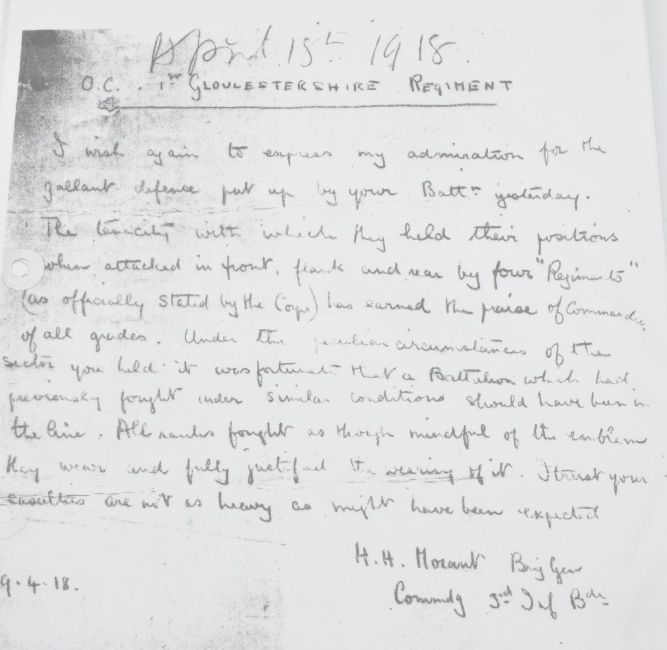 April 15th 1918.
O.C. 1st GLOUCESTERSHIRE REGIMENT
I wish again to express my admiration for the
gallant defence put up by your Battn yesterday.
The tenacity with which they held their positions
when attacked in front, flank and rear by four "Regiments"
(as officially stated by the Corps) has earned the praise of Commanders
of all grades. Under the peculiar circumstances of the
sector you held it was fortunate that a Battalion which had
previously fought under similar conditions should have been in
the line. All ranks fought as though mindful of the emblem
they wear and fully justified the wearing of it. I trust your
casualties are not as heavy as might have been expected
H.H. Morant Brig Gen
9.4.18. Commdg 3rd Inf Bde